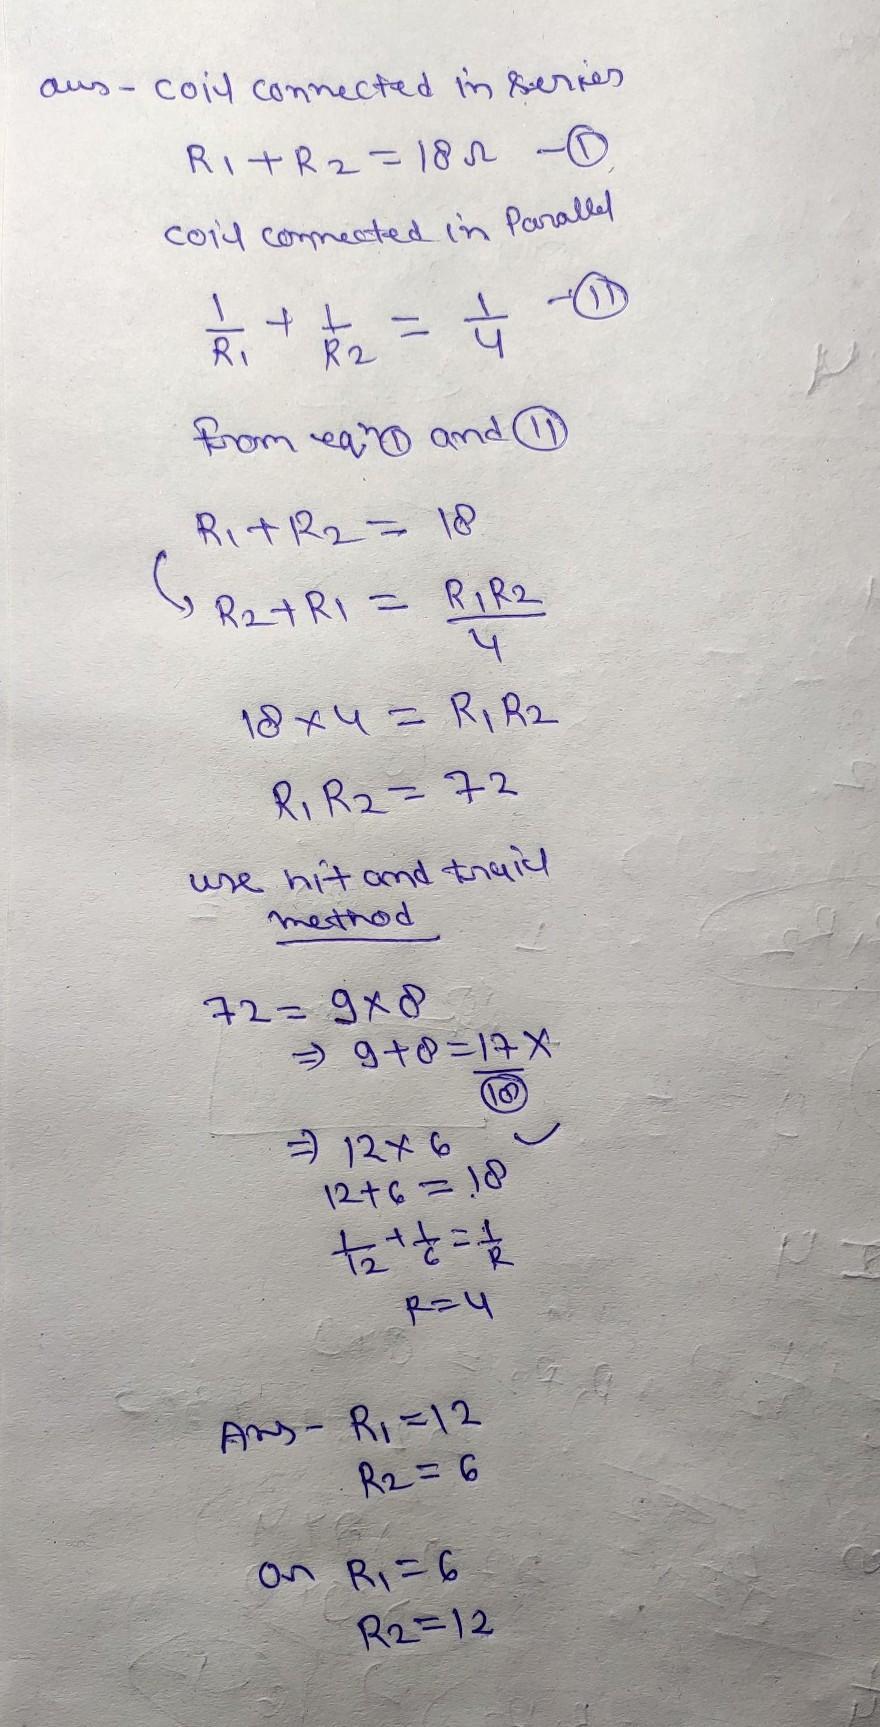 ans - coil connected in series
R1 + R2 = 18 Ω - ①
coil connected in Parallel
1/R1 + 1/R2 = 1/4 - ⑪
from eqn ① and ⑪
R1 + R2 = 18
R2 + R1 = R1R2/4
18 × 4 = R1R2
R1R2 = 72
use hit and trail
method
72 = 9 × 8
⇒ 9 + 8 = 17 ×
⑱
⇒ 12 × 6 ✓
12 + 6 = 18
1/12 + 1/6 = 1/R
R = 4
Ans - R1 = 12
R2 = 6
or R1 = 6
R2 = 12